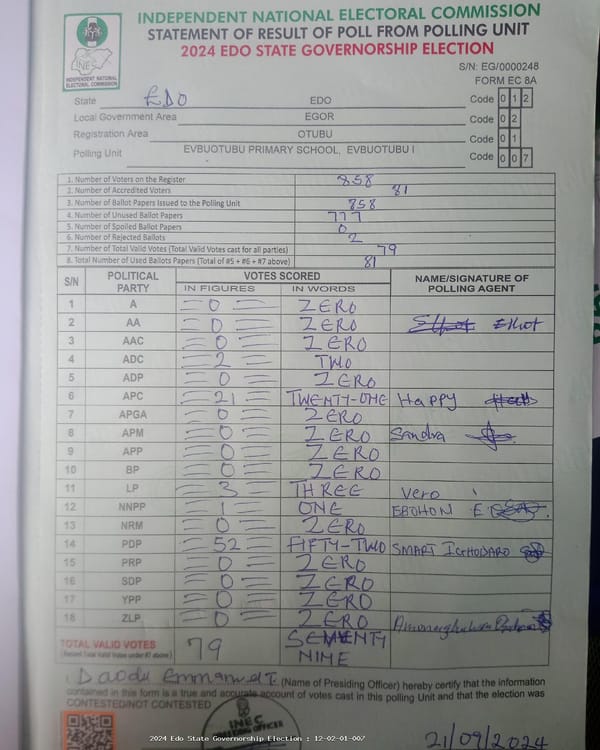 INDEPENDENT NATIONAL ELECTORAL COMMISSION
STATEMENT OF RESULT OF POLL FROM POLLING UNIT
2024 EDO STATE GOVERNORSHIP ELECTION
INEC
INDEPENDENT NATIONAL
ELECTORAL COMMISSION
S/N: EG/0000248
FORM EC 8A
State EDO EDO Code 0 1 2
Local Government Area EGOR Code 0 2
Registration Area OTUBU Code 0 1
Polling Unit EVBUOTUBU PRIMARY SCHOOL, EVBUOTUBU I Code 0 0 7
1. Number of Voters on the Register 858
2. Number of Accredited Voters 81
3. Number of Ballot Papers Issued to the Polling Unit 858
4. Number of Unused Ballot Papers 777
5. Number of Spoiled Ballot Papers 0
6. Number of Rejected Ballots 2
7. Number of Total Valid Votes (Total Valid Votes cast for all parties) 79
8. Total Number of Used Ballots Papers (Total of #5 + #6 + #7 above) 81
S/N POLITICAL PARTY VOTES SCORED NAME/SIGNATURE OF POLLING AGENT
IN FIGURES IN WORDS
1 A 0 ZERO
2 AA 0 ZERO
3 AAC 0 ZERO
4 ADC 2 TWO
5 ADP 0 ZERO
6 APC 21 TWENTY-ONE Happy
7 APGA 0 ZERO
8 APM 0 ZERO Sandra
9 APP 0 ZERO
10 BP 0 ZERO
11 LP 3 THREE Vero
12 NNPP 1 ONE EBOHON E
13 NRM 0 ZERO
14 PDP 52 FIFTY-TWO SMART
15 PRP 0 ZERO
16 SDP 0 ZERO
17 YPP 0 ZERO
18 ZLP 0 ZERO
TOTAL VALID VOTES 79 SEVENTY
NINE
I Daodu Emmanuel T. (Name of Presiding Officer) hereby certify that the information
contained in this form is a true and accurate account of votes cast in this polling Unit and that the election was
CONTESTED/NOT CONTESTED
INEC
21/09/2024
2024 Edo State Governorship Election : 12-02-01-007